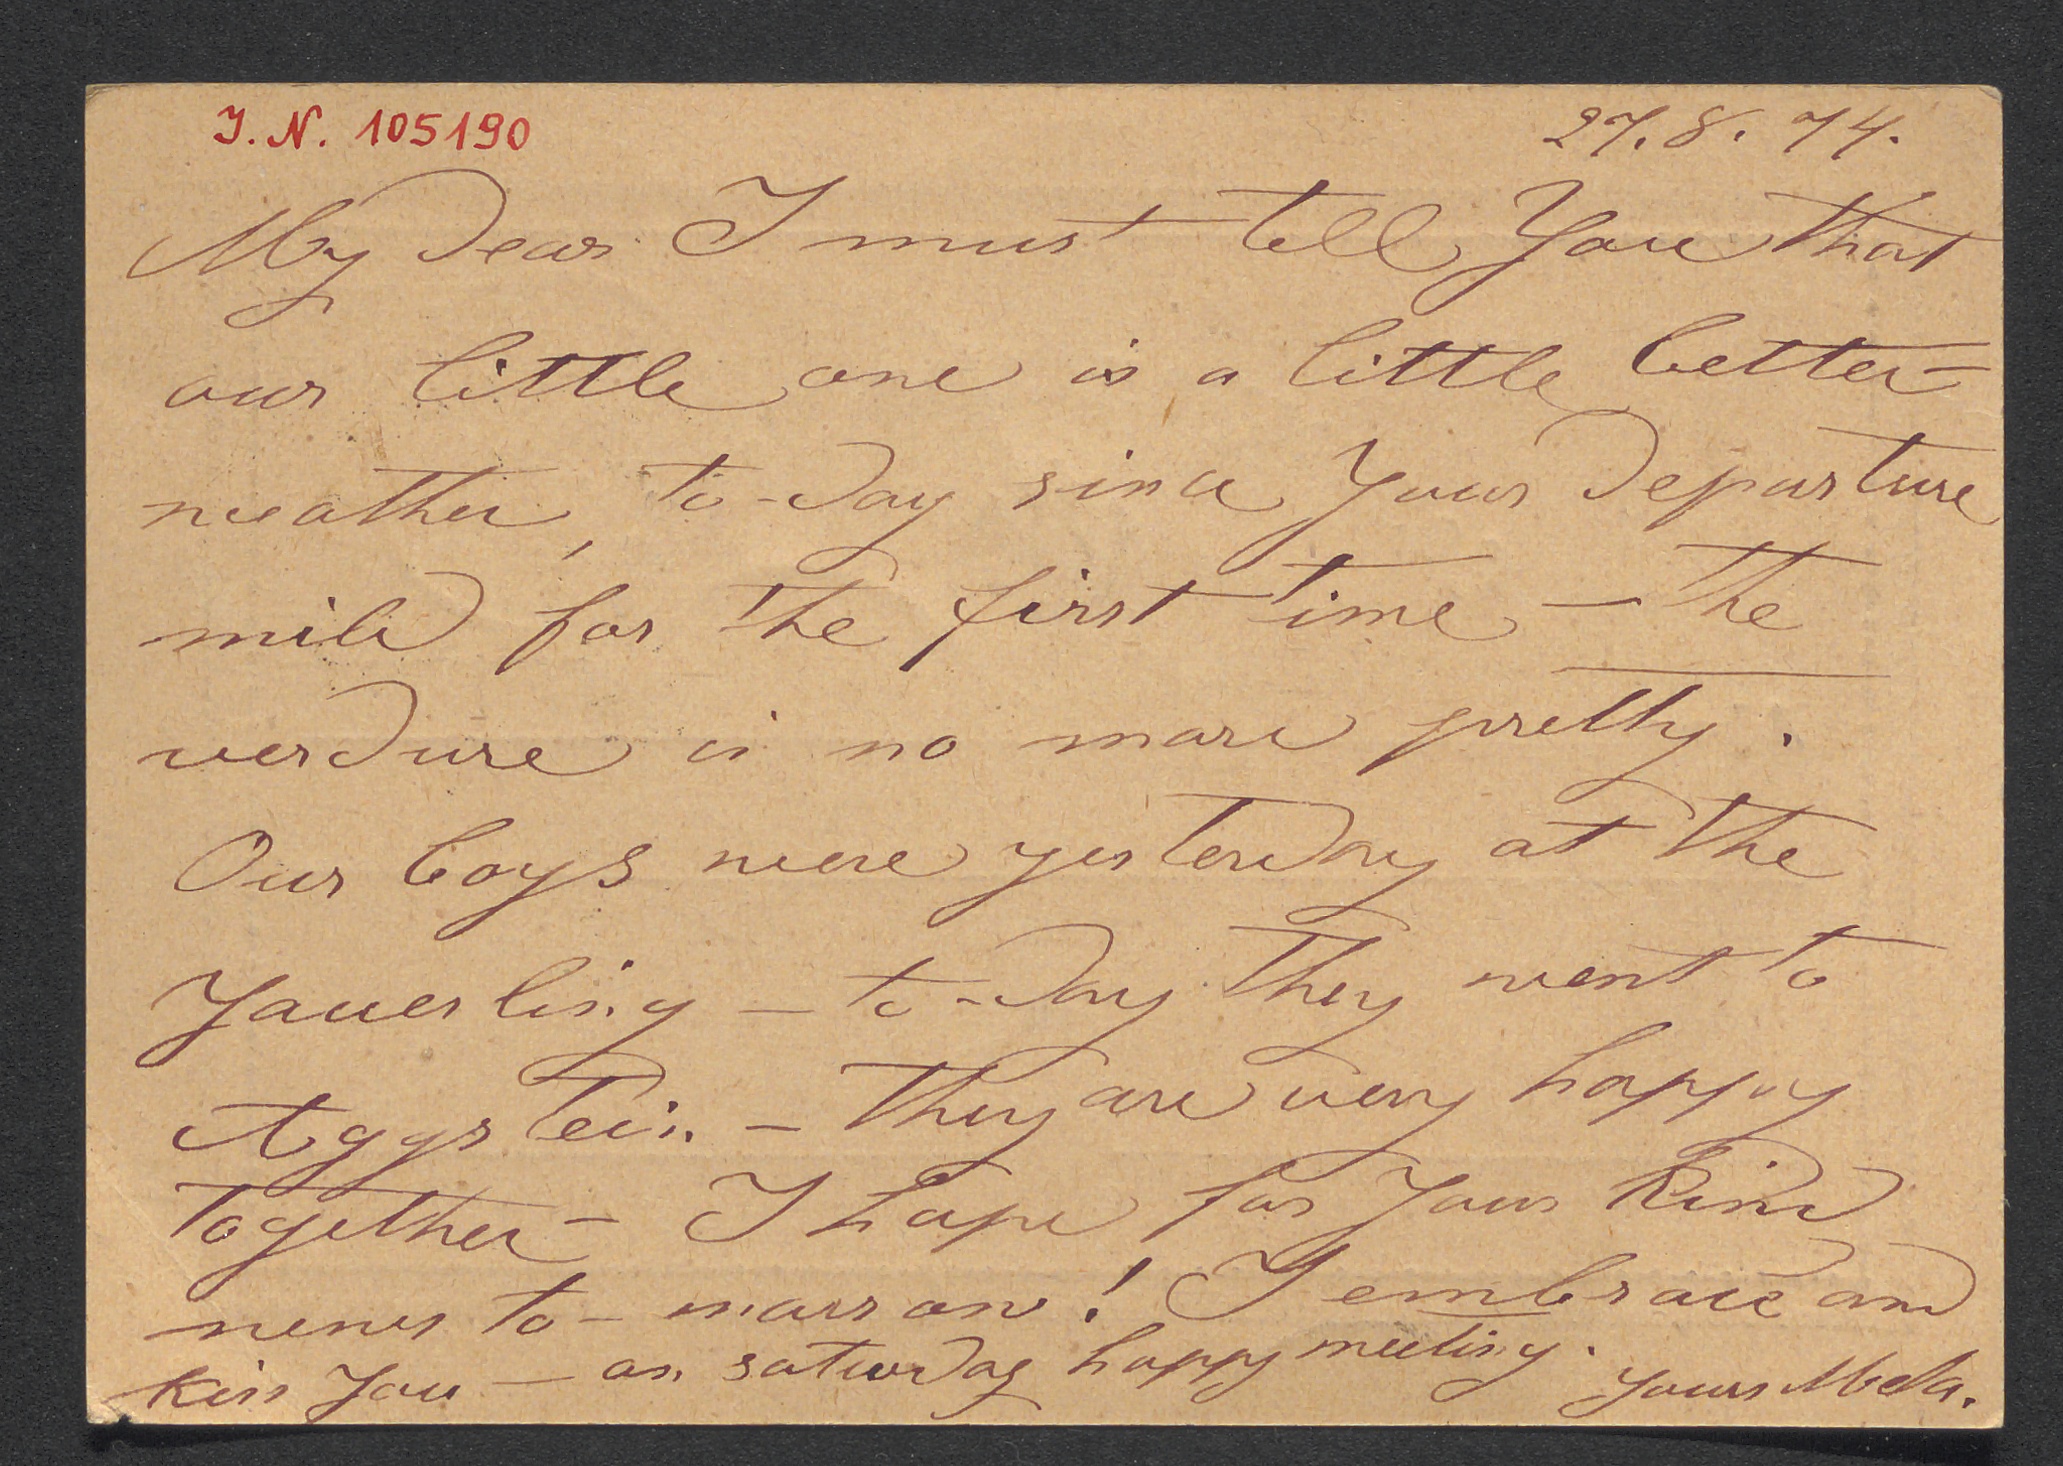 J. N. 105190
27. 8. 74.
My dear I must tell You that
our little one is a little better –
weather, to-day since Your departure
mild for the first time – the
verdure is no more pretty.
Our boys were yesterday at the
Yauerling – to-day they went to
Aggstein – they are very happy
together – I hope for Your kind
news to-morrow! I embrace and
kiss You – on saturday happy meeting.
Yours Mela.